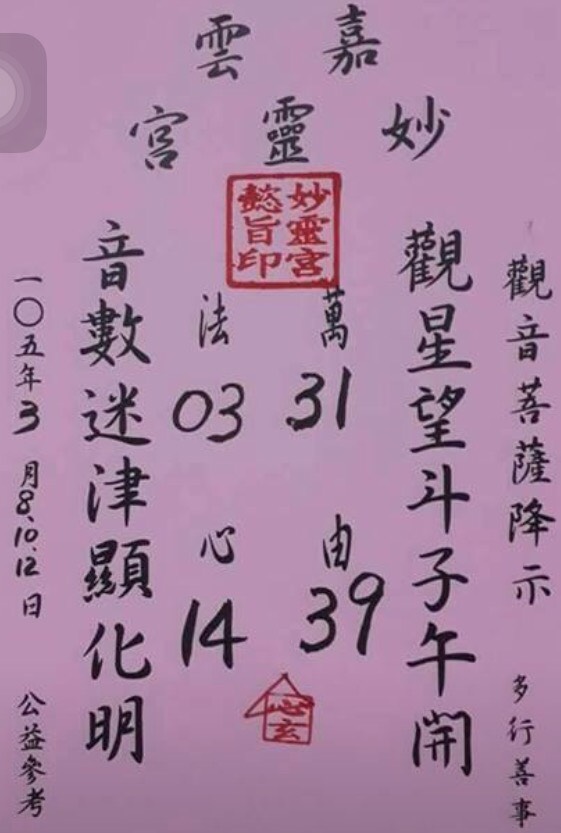 嘉雲
妙靈宮
妙靈宮
懿旨印
觀音菩薩降示 多行善事
觀星望斗子午開
萬 31 由 39
法 03 心 14
心玄
音數迷津顯化明
一〇五年3月8.10.12日 公益參考